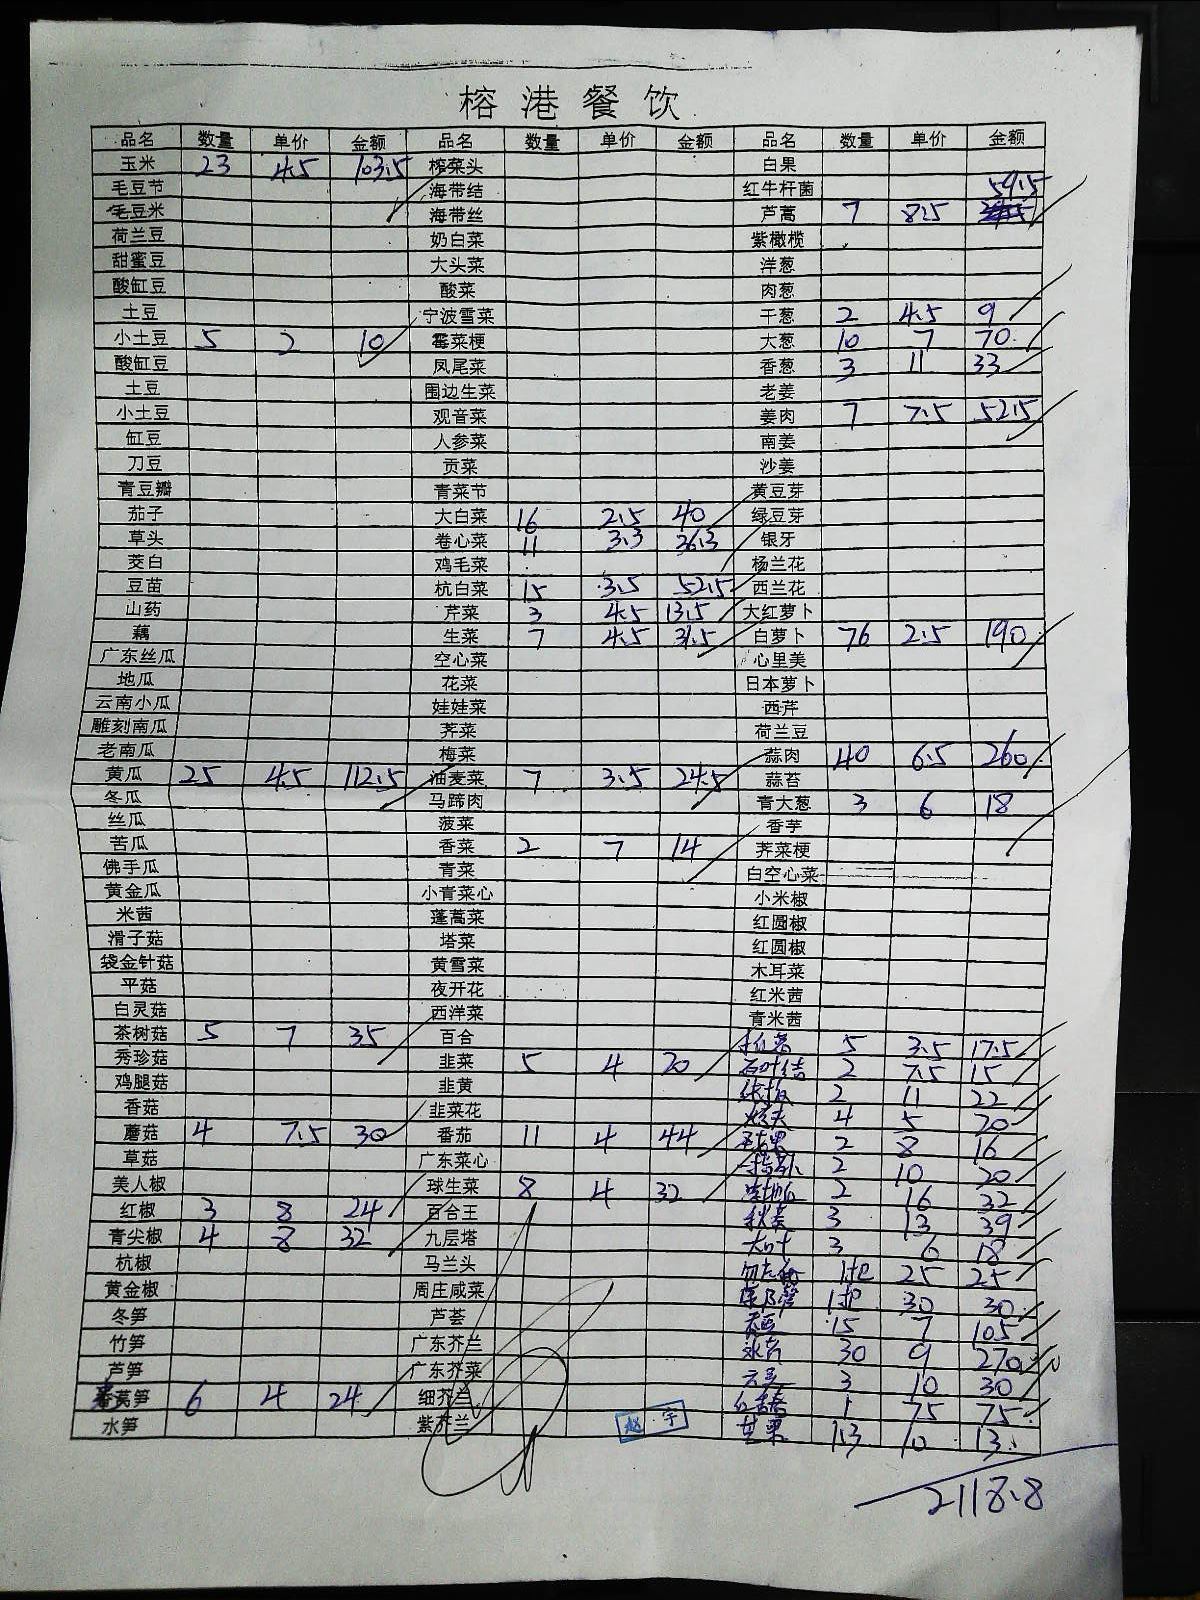 榕港餐饮
品名 数量 单价 金额 品名 数量 单价 金额 品名 数量 单价 金额
玉米 23 4.5 103.5 榨菜头 白果
毛豆节 海带结 红牛杆菌 59.5
毛豆米 海带丝 芦蒿 7 8.5
荷兰豆 奶白菜 紫橄榄
甜蜜豆 大头菜 洋葱
酸缸豆 酸菜 肉葱
土豆 宁波雪菜 干葱 2 4.5 9
小土豆 5 2 10 霉菜梗 大葱 10 7 70
酸缸豆 凤尾菜 香葱 3 11 33
土豆 围边生菜 老姜
小土豆 观音菜 姜肉 7 7.5 52.5
缸豆 人参菜 南姜
刀豆 贡菜 沙姜
青豆瓣 青菜节 黄豆芽
茄子 大白菜 16 2.5 40 绿豆芽
草头 卷心菜 11 3.3 36.3 银牙
茭白 鸡毛菜 杨兰花
豆苗 杭白菜 15 3.5 52.5 西兰花
山药 芹菜 3 4.5 13.5 大红萝卜
藕 生菜 7 4.5 31.5 白萝卜 76 2.5 190
广东丝瓜 空心菜 心里美
地瓜 花菜 日本萝卜
云南小瓜 娃娃菜 西芹
雕刻南瓜 荠菜 荷兰豆
老南瓜 梅菜 蒜肉 40 6.5 260
黄瓜 25 4.5 112.5 油麦菜 7 3.5 24.5 蒜苔
冬瓜 马蹄肉 青大葱 3 6 18
丝瓜 菠菜 香芋
苦瓜 香菜 2 7 14 荠菜梗
佛手瓜 青菜 白空心菜
黄金瓜 小青菜心 小米椒
米茜 蓬蒿菜 红圆椒
滑子菇 塔菜 红圆椒
袋金针菇 黄雪菜 木耳菜
平菇 夜开花 红米茜
白灵菇 西洋菜 青米茜
茶树菇 5 7 35 百合 5 3.5 17.5
秀珍菇 韭菜 5 4 20 百叶结 2 7.5 15
鸡腿菇 韭黄 2 11 22
香菇 韭菜花 4 5 20
蘑菇 4 7.5 30 番茄 11 4 44 2 8 16
草菇 广东菜心 2 10 20
美人椒 球生菜 8 4 32 2 16 32
红椒 3 8 24 百合王 3 13 39
青尖椒 4 8 32 九层塔 大叶 3 6 18
杭椒 马兰头 1把 25 25
黄金椒 周庄咸菜 1把 30 30
冬笋 芦荟 15 7 105
竹笋 广东芥兰 30 9 270
芦笋 广东芥菜 3 10 30
莴笋 6 4 24 细芥兰 1 75 75
水笋 紫芥兰 芒果 1.3 10 13
赵宇
2118.8